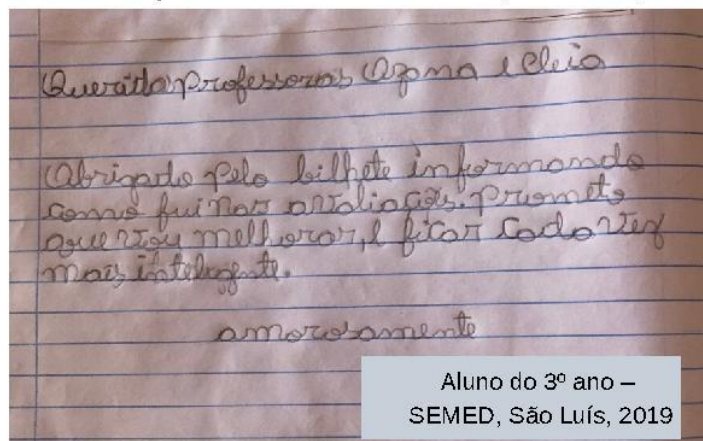 Querida Professoras Ozoma e Cleia
Obrigado pelo bilhete informando
como fui nas avaliações. Prometo
que vou melhorar, e ficar cada vez
mais inteligente.
amorosamente
Aluno do 3º ano –
SEMED, São Luís, 2019